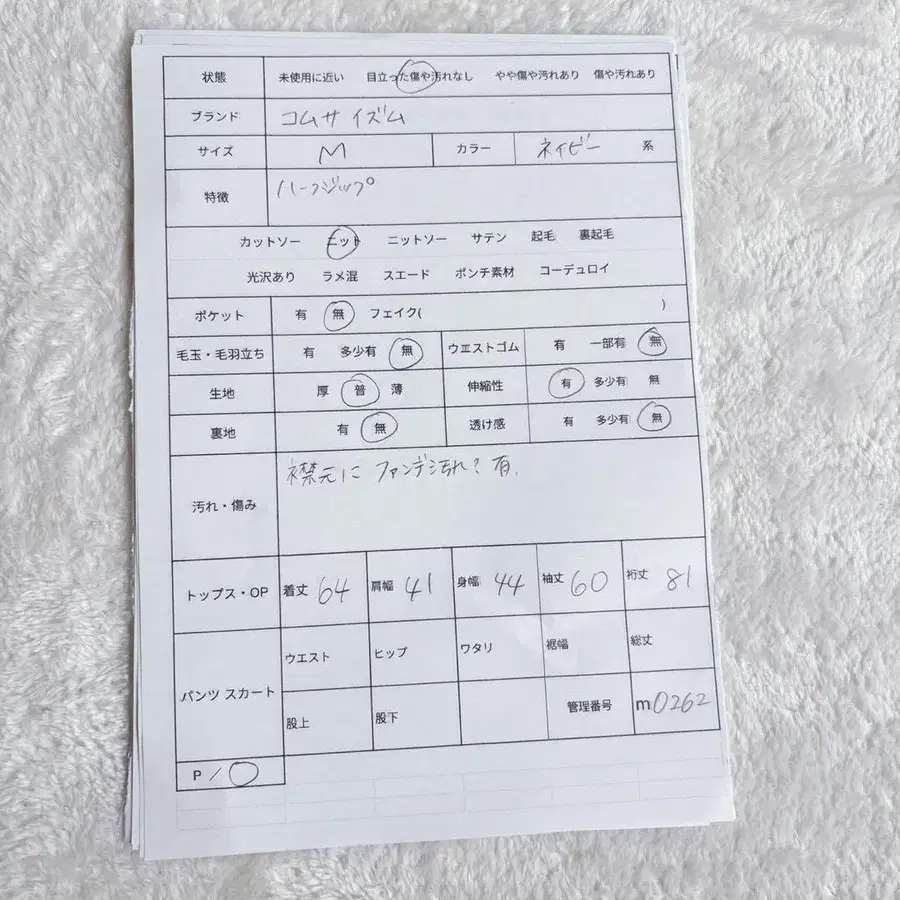 状態 未使用に近い 目立った傷や汚れなし やや傷や汚れあり 傷や汚れあり
ブランド コムサイズム
サイズ M カラー ネイビー 系
特徴 ハーフジップ
カットソー ニット ニットソー サテン 起毛 裏起毛
光沢あり ラメ混 スエード ポンチ素材 コーデュロイ
ポケット 有 無 フェイク( )
毛玉・毛羽立ち 有 多少有 無 ウエストゴム 有 一部有 無
生地 厚 普 薄 伸縮性 有 多少有 無
裏地 有 無 透け感 有 多少有 無
汚れ・傷み 襟元に ファンデ汚れ? 有.
トップス・OP 着丈 64 肩幅 41 身幅 44 袖丈 60 裄丈 81
パンツ スカート ウエスト ヒップ ワタリ 裾幅 総丈
股上 股下 管理番号 m0262
P /